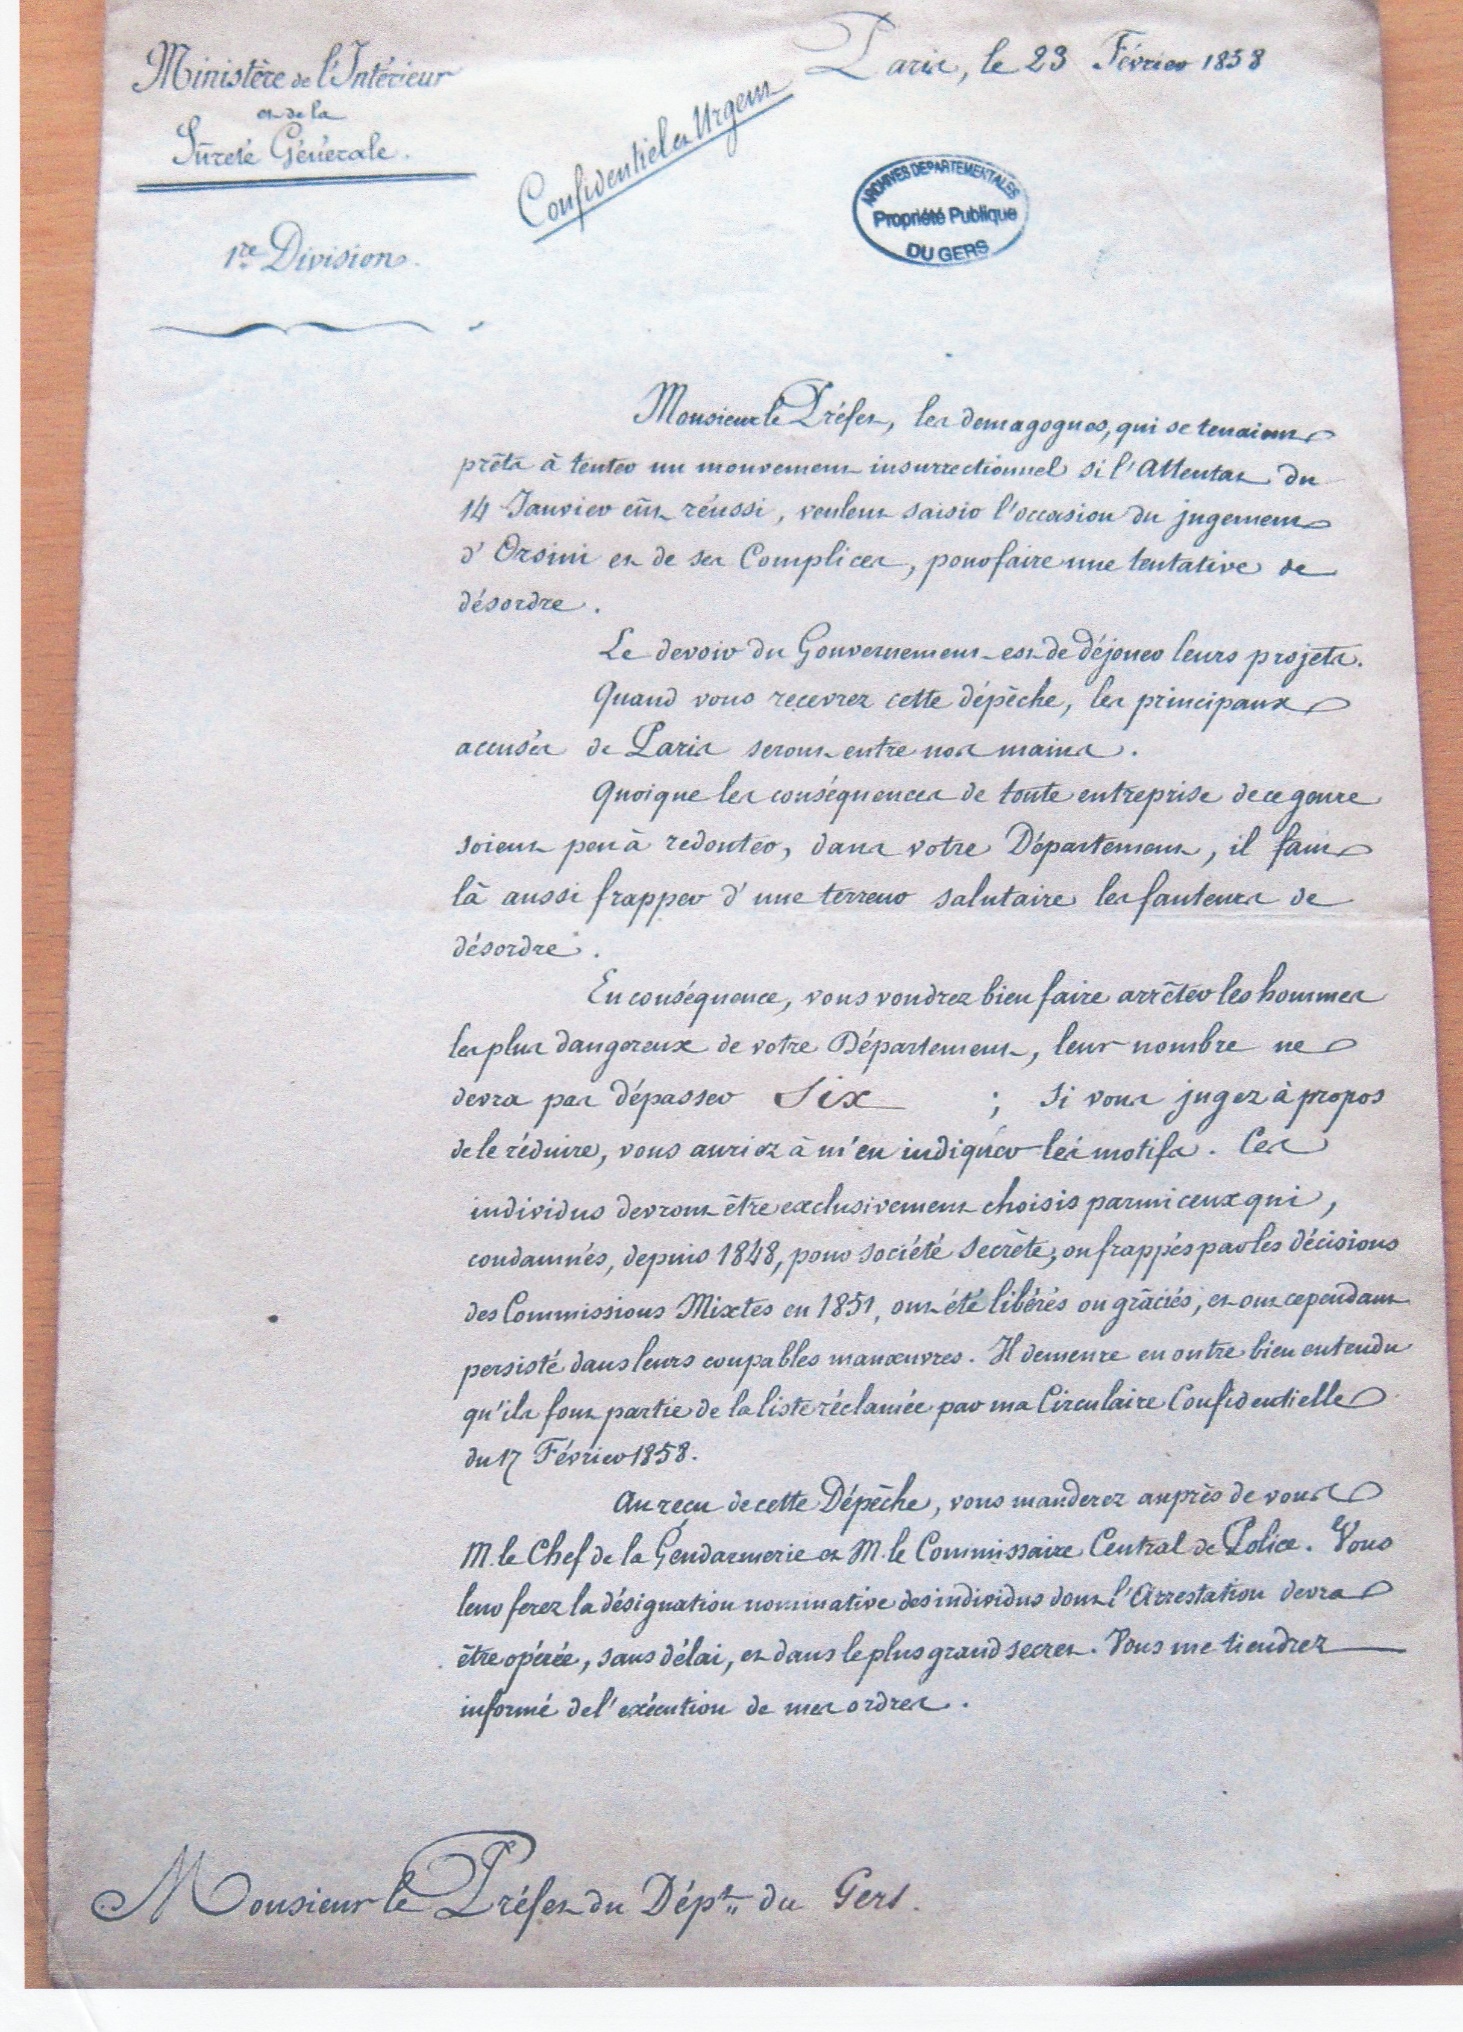 Ministère de l'Intérieur
et de la
Sûreté Générale.
1re Division.
Confidentiel et Urgent
Paris, le 23 Février 1858
ARCHIVES DEPARTEMENTALES
Propriété Publique
DU GERS
Monsieur le Préfet, les demagogues, qui se tenaient
prêts à tenter un mouvement insurrectionnel si l'Attentat du
14 Janvier eût réussi, veulent saisir l'occasion du jugement
d'Orsini et de ses Complices, pour faire une tentative de
désordre.
Le devoir du Gouvernement est de déjouer leurs projets.
Quand vous recevrez cette dépêche, les principaux
accusés de Paris seront entre nos mains.
Quoique les conséquences de toute entreprise de ce genre
soient peu à redouter, dans votre Département, il faut
là aussi frapper d'une terreur salutaire les fauteurs de
désordre.
En conséquence, vous voudrez bien faire arrêter les hommes
les plus dangereux de votre Département, leur nombre ne
devra pas dépasser Six ; si vous jugez à propos
de le réduire, vous auriez à m'en indiquer les motifs. Ces
individus devront être exclusivement choisis parmi ceux qui,
condamnés, depuis 1848, pour société secrète, ou frappés par les décisions
des Commissions Mixtes en 1851, ont été libérés ou grâciés, et ont cependant
persisté dans leurs coupables manœuvres. Il demeure en outre bien entendu
qu'ils font partie de la liste réclamée par ma Circulaire Confidentielle
du 17 Février 1858.
Au reçu de cette Dépêche, vous manderez auprès de vous
M. le Chef de la Gendarmerie et M. le Commissaire Central de Police. Vous
leur ferez la désignation nominative des individus dont l'Arrestation devra
être opérée, sans délai, et dans le plus grand secret. Vous me tiendrez
informé de l'exécution de mes ordres.
Monsieur le Préfet du Dépt du Gers.